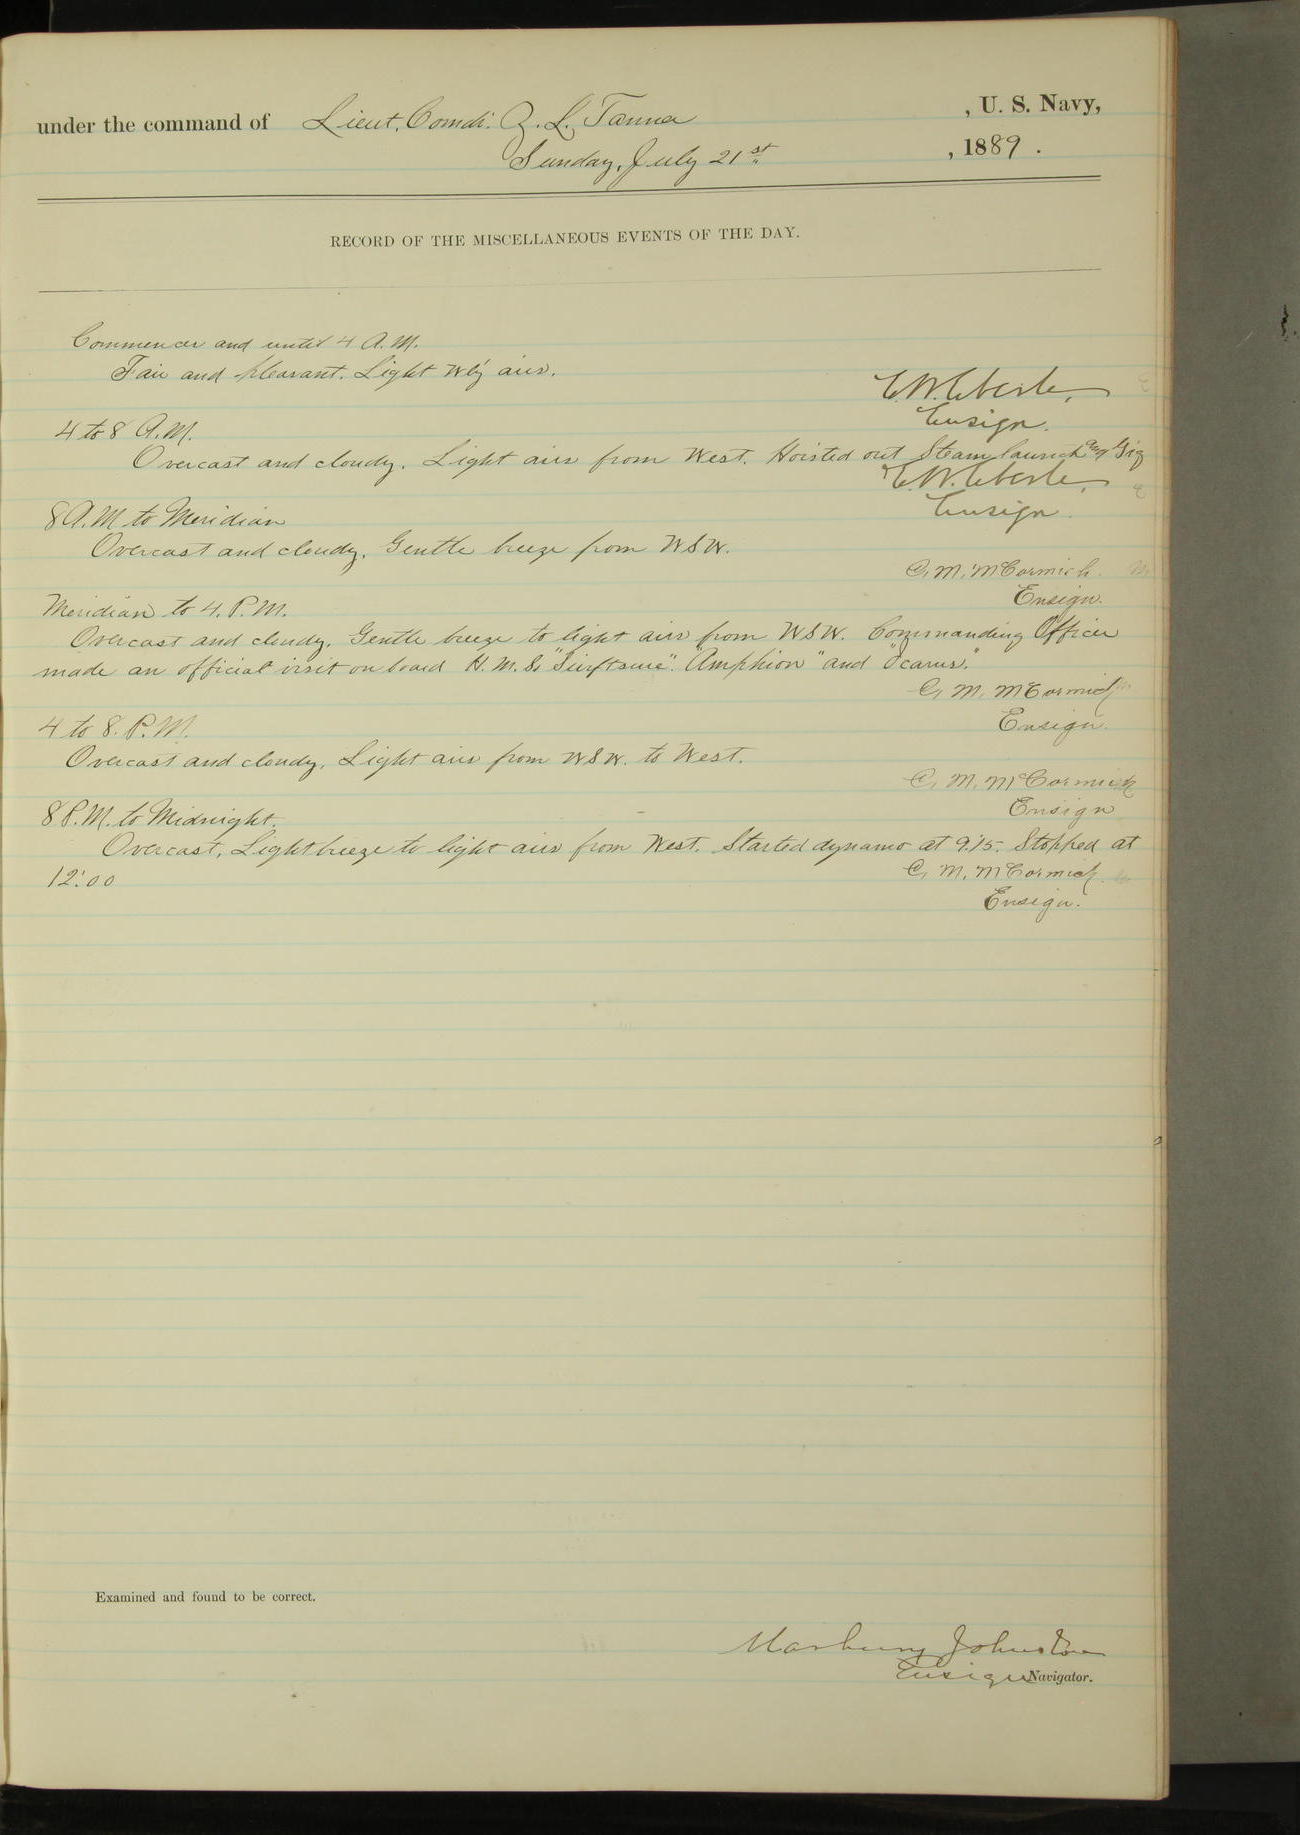 under the command of Lieut. Comdr. Z. L. Tanner , U. S. Navy,
Sunday, July 21st , 1889 .
RECORD OF THE MISCELLANEOUS EVENTS OF THE DAY.
Commences and until 4 A.M.
Fair and pleasant. Light Wly airs.
E. W. Eberle,
Ensign.
4 to 8 A.M.
Overcast and cloudy. Light airs from West. Hoisted out Steam launch and Gig
E. W. Eberle,
Ensign.
8 A.M to Meridian
Overcast and cloudy. Gentle breeze from WSW.
C. M. McCormick.
Ensign.
Meridian to 4. P.M.
Overcast and cloudy. Gentle breeze to light airs from WSW. Commanding Officer
made an official visit on board H.M.S. "Swiftsure". "Amphion" and "Icarus."
C. M. McCormick
Ensign.
4 to 8. P.M.
Overcast and cloudy. Light airs from WSW. to West.
C. M. McCormick
Ensign
8 P.M. to Midnight.
Overcast, Light breeze to light airs from West. Started dynamo at 9:15. Stopped at
12:00
C. M. McCormick.
Ensign.
Examined and found to be correct.
Marbury Johnston
Ensign Navigator.